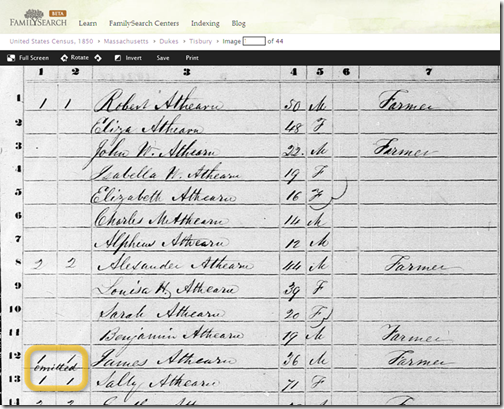 FAMILYSEARCH BETA Learn FamilySearch Centers Indexing Blog
United States Census, 1850 › Massachusetts › Dukes › Tisbury › Image of 44
Full Screen Rotate Invert Save Print
1 2 3 4 5 6 7
1 1 1 Robert Athearn 50 M Farmer
2 Eliza Athearn 48 F
3 John W. Athearn 22. M Farmer
4 Isabella W. Athearn 19 F
5 Elizabeth Athearn 16 F
6 Charles Athearn 14 M
7 Alpheus Athearn 12 M
8 2 2 Alexander Athearn 44 M Farmer
9 Louisa H. Athearn 39 F
10 Sarah Athearn 20 F
11 Benjamin Athearn 19 M Farmer
12 1 1 James Athearn 36 M Farmer
omitted
13 1 1 Sally Athearn 71 F